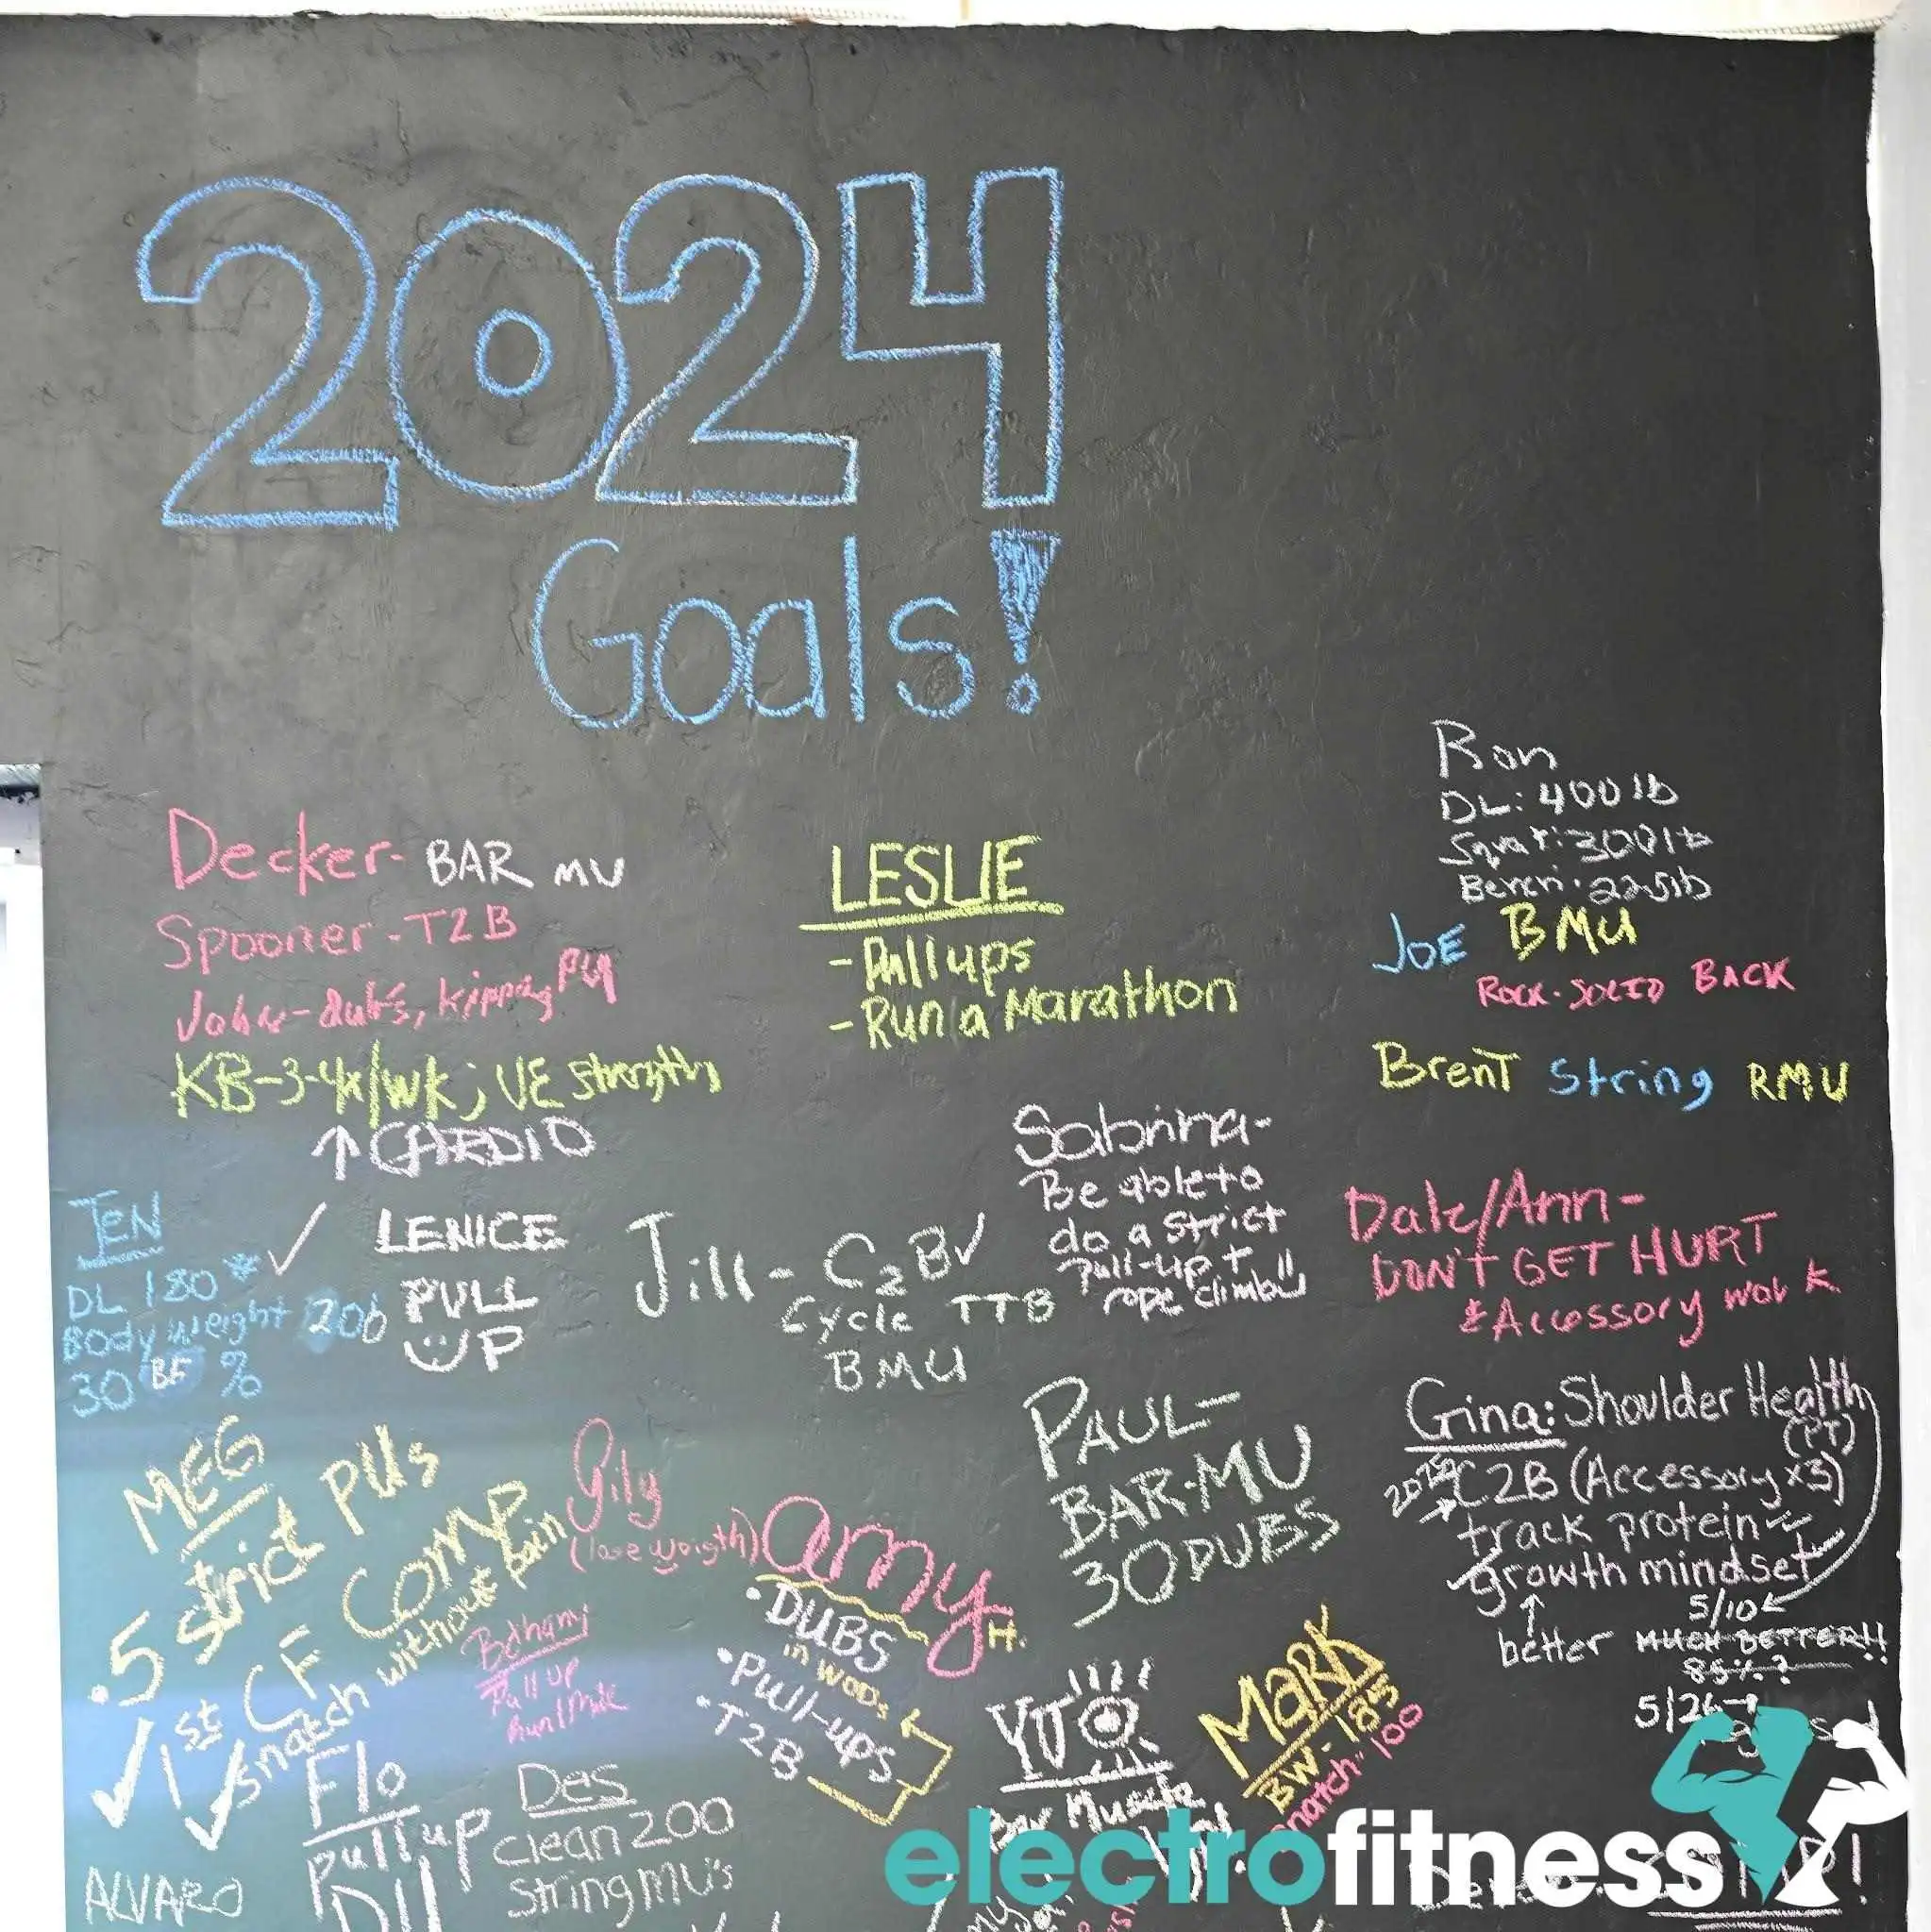 2024
Goals!
Ron
DL: 400 lb
Squat: 300 lb
Bench: 225 lb
Decker- BAR MU
Spooner - T2B
John - dubs, kipping PU
KB-3-4x/wk; UE strength
↑ CARDIO
LESLIE
- Pull ups
- Run a Marathon
JOE BMU
ROCK-SOLID BACK
BrenT String RMU
JEN
DL 180 * ✓
Body weight 206
30 BF %
LENICE
PULL
UP
Jill - C2B ✓
Cycle TTB
BMU
Sabrina-
Be able to
do a strict
Pull-up +
rope climb!!
Dale/Ann-
DON'T GET HURT
& Accessory work
MEG
.5 strict PUs
✓ 1st CF Comp
✓ snatch without pain
gily
(lose weigth)
Bethany
Pull up
Run 1 Mile
amy H.
• DUBS
in WODs
• Pull-ups
• T2B
PAUL-
BAR-MU
30 DUBS
Gina: Shoulder Health
(PT)
C2B (Accessory x3)
track protein
growth mindset
5/10
better MUCH BETTER!!
85%?
5/26
YU
Bar Muscle
MARK
BW-185
Snatch-100
Flo
pull up
DU
Des
clean 200
String MU's
ALVARO
electrofitness